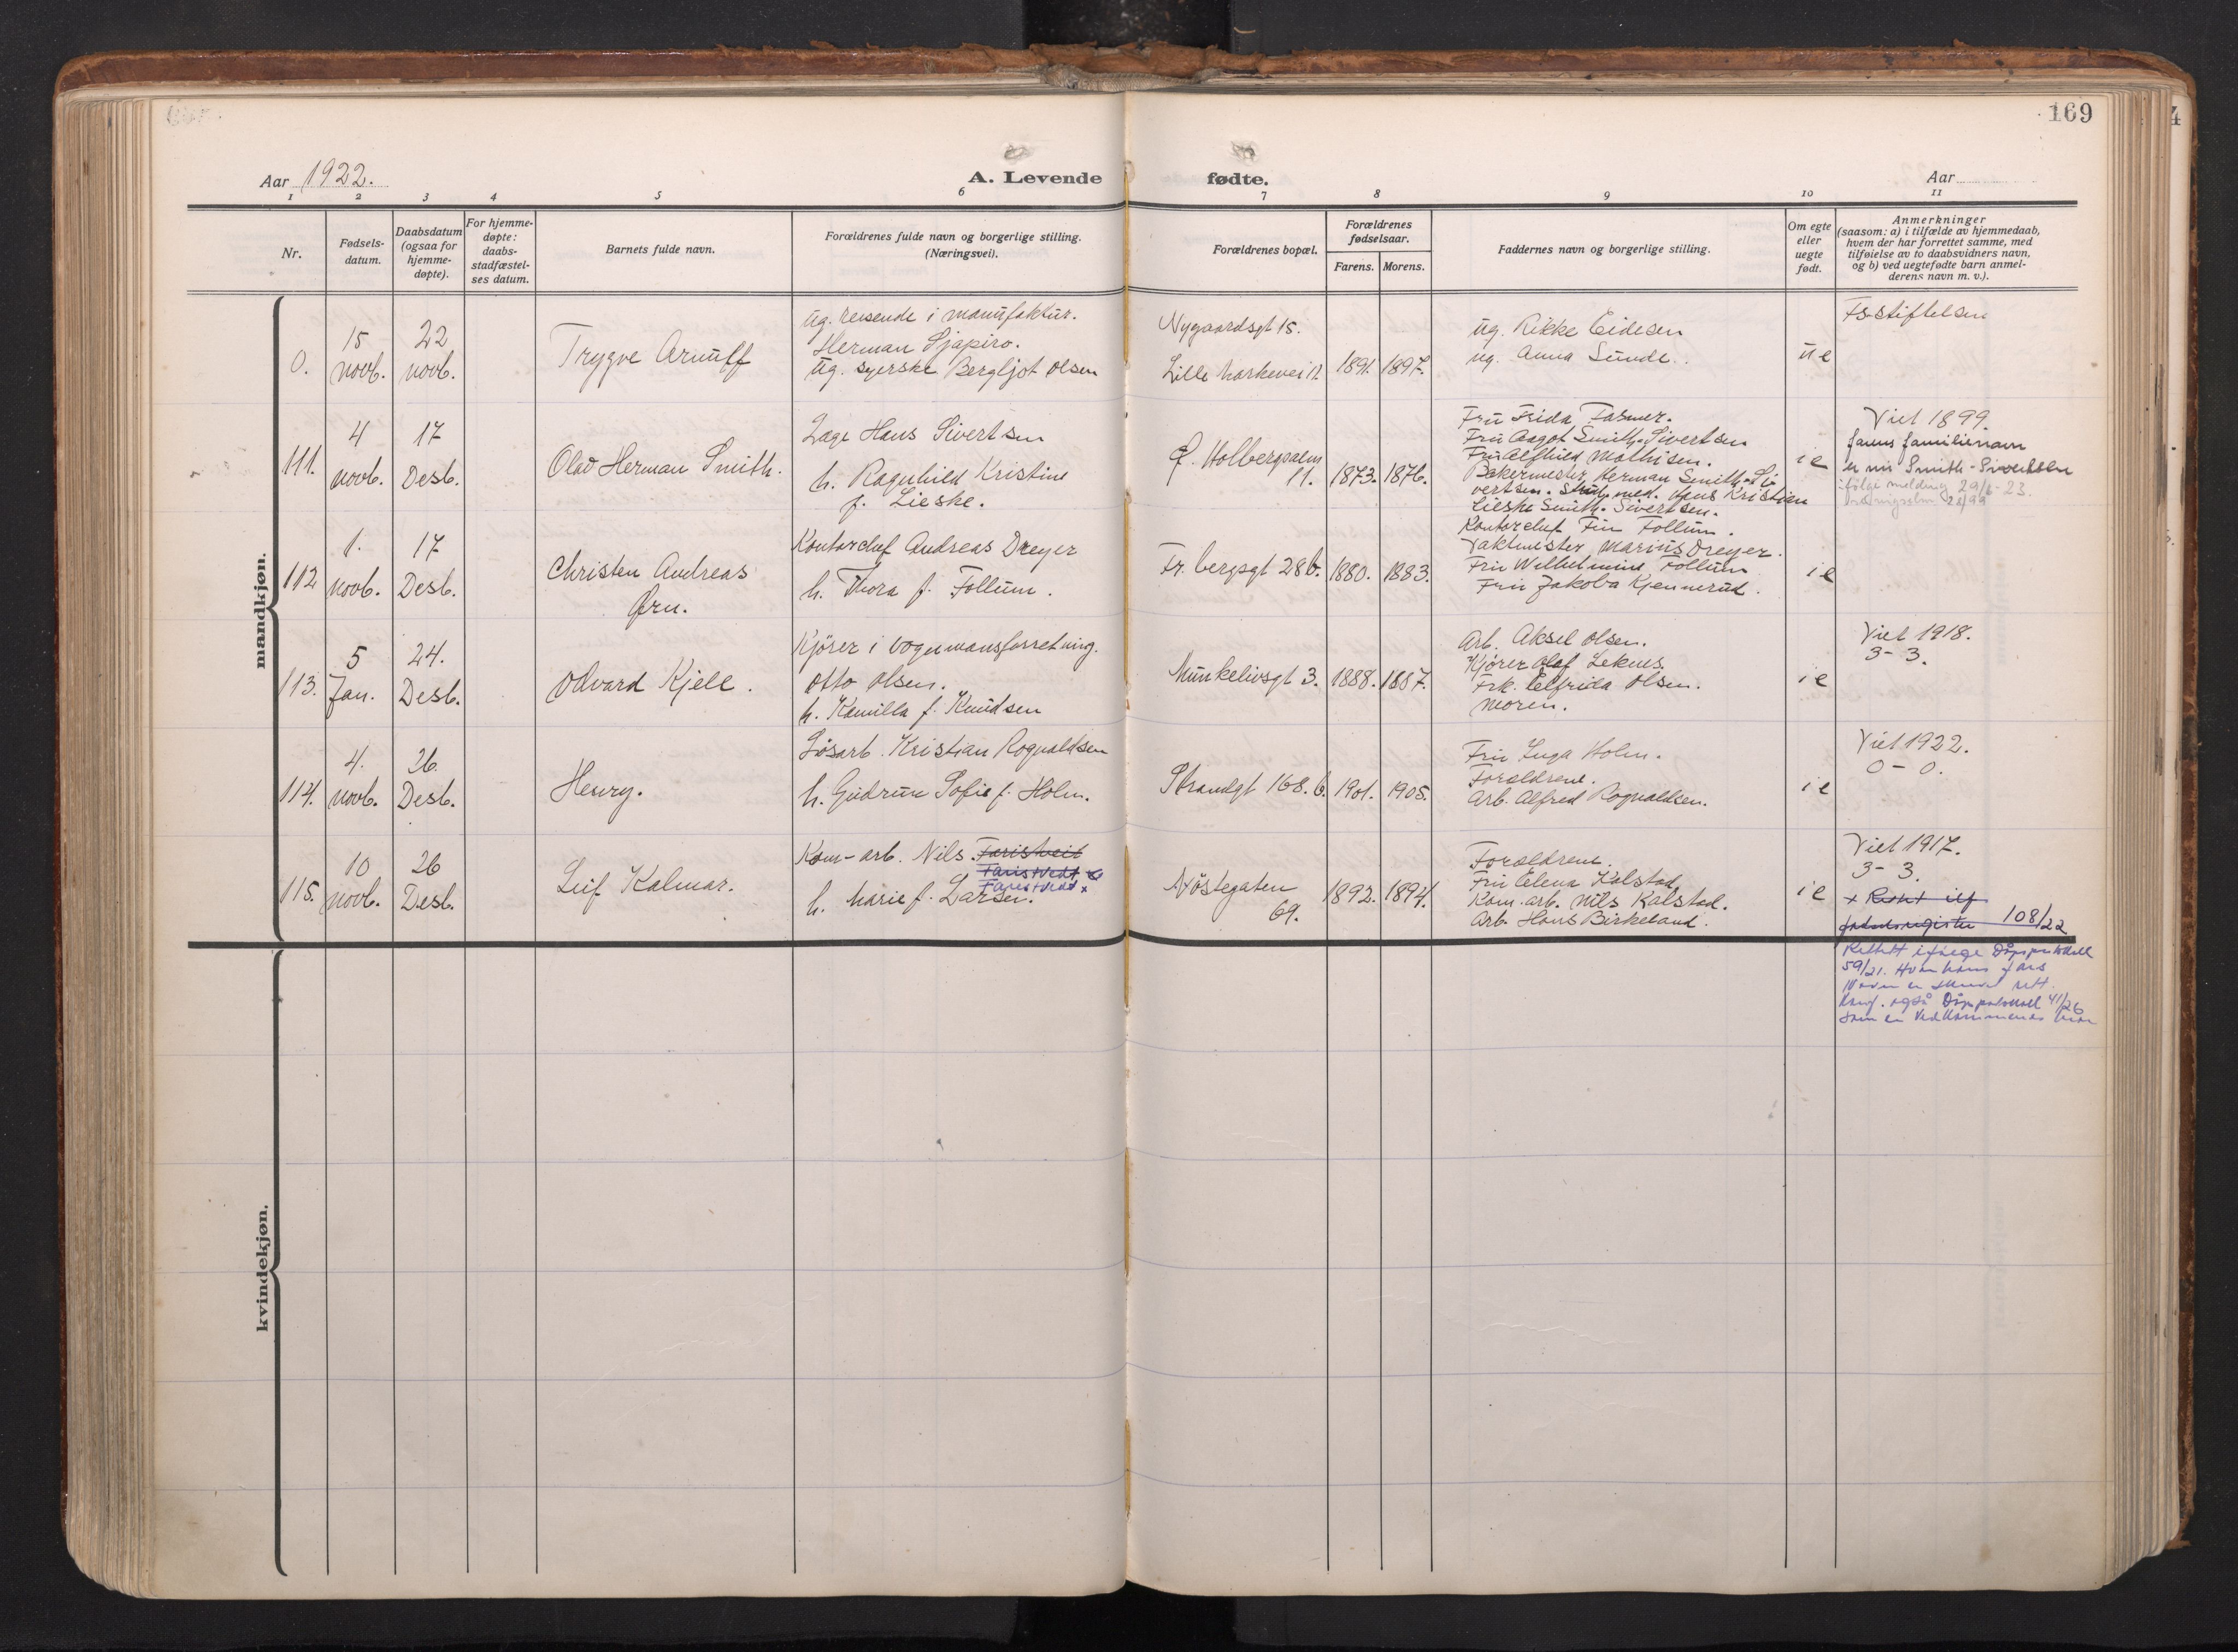 169
Aar 1922.
A. Levende
fødte.
Aar
1 2 3 4 5 6 7 8 9 10 11
Nr.
Fødsels-
datum.
Daabsdatum
(ogsaa for
hjemme-
døpte).
For hjemme-
døpte:
daabs-
stadfæstel-
ses datum.
Barnets fulde navn.
Forældrenes fulde navn og borgerlige stilling.
(Næringsvei).
Forældrenes bopæl.
Forældrenes
fødselsaar.
Farens. Morens.
Faddernes navn og borgerlige stilling.
Om egte
eller
uegte
født.
Anmerkninger
(saasom: a) i tilfælde av hjemmedaab,
hvem der har forrettet samme, med
tilføielse av to daabsvidners navn,
og b) ved uegtefødte barn anmel-
derens navn m. v.).
mandkjøn.
0.
15
novb.
22
novb.
Trygve Arnulf
ug. reisende i manufaktur.
Herman Sjapiro.
ug. syerske Bergljot Olsen
Nygaardsgt 15.
Lille Markevei 11
1891. 1897.
ug. Rikke Eidesen
ug. Anna Sunde.
u e
Fs-stiftelsen
111.
4
novb.
17
Desb.
Olav Herman Smith.
Læge Hans Sivertsen
h. Ragnhild Kristine
f. Lieske.
L. Holbergsalm
11.
1873. 1876.
Fru Frida Fasmer.
Fru Aagot Smith-Sivertsen
Fru Alfhild Mathisen.
Bakermester Herman Smith-Si
vertsen. Stud. med. Hans Kristian
Lieske Smith-Sivertsen.
i e
Viet 1899.
farens familienavn
er nu Smith-Sivertsen
ifølge melding 29/6-23.
112
1.
novb.
17
Desb.
Christen Andreas
Ørn.
Kontorchef Andreas Dreyer
h. Thora f. Follum.
Fr. bergsgt 28 b.
1880. 1883.
Kontorchef Fin Follum.
Vaktmester Marius Dreyer.
Fru Wilhelmine Follum
Fru Jakoba Kjennerud.
i e
113.
5
Jan.
24.
Desb.
Odvard Kjell.
Kjører i vognmansforretning.
Otto Olsen.
h. Kamilla f. Knudsen
Munkelivsgt 3.
1888. 1887.
Arb. Aksel Olsen.
Kjører Olaf Leknes.
Frk. Elfrida Olsen.
Moren.
i e
Viet 1918.
3-3.
114.
4.
novb.
26.
Desb.
Henry.
Løsarb. Kristian Rognaldsen
h. Gudrun Sofie f. Holm.
Strandgt 168. b.
1901. 1905.
Fru Inga Holm.
Forældrene.
Arb. Alfred Rognaldsen.
i e
Viet 1922.
0-0.
115.
10
novb.
26
Desb.
Leif Kalmar.
Kom-arb. Nils Faristveit
Faristvedt
Farestvedt x
h. Marie f. Larsen.
Nøstegaten
69.
1892. 1894.
Forældrene.
Fru Elena Kalstad
Kom.arb. Nils Kalstad.
Arb. Hans Birkeland.
i e
Viet 1917.
3-3.
fødselsregister 108/22
Rettet ifølge Dåpsprotokoll
59/21. Hvor hans fars
Navn er skrevet rett.
Konf. også Dåpsprotokoll 41/26
som er Vedkommendes bror
kvindekjøn.